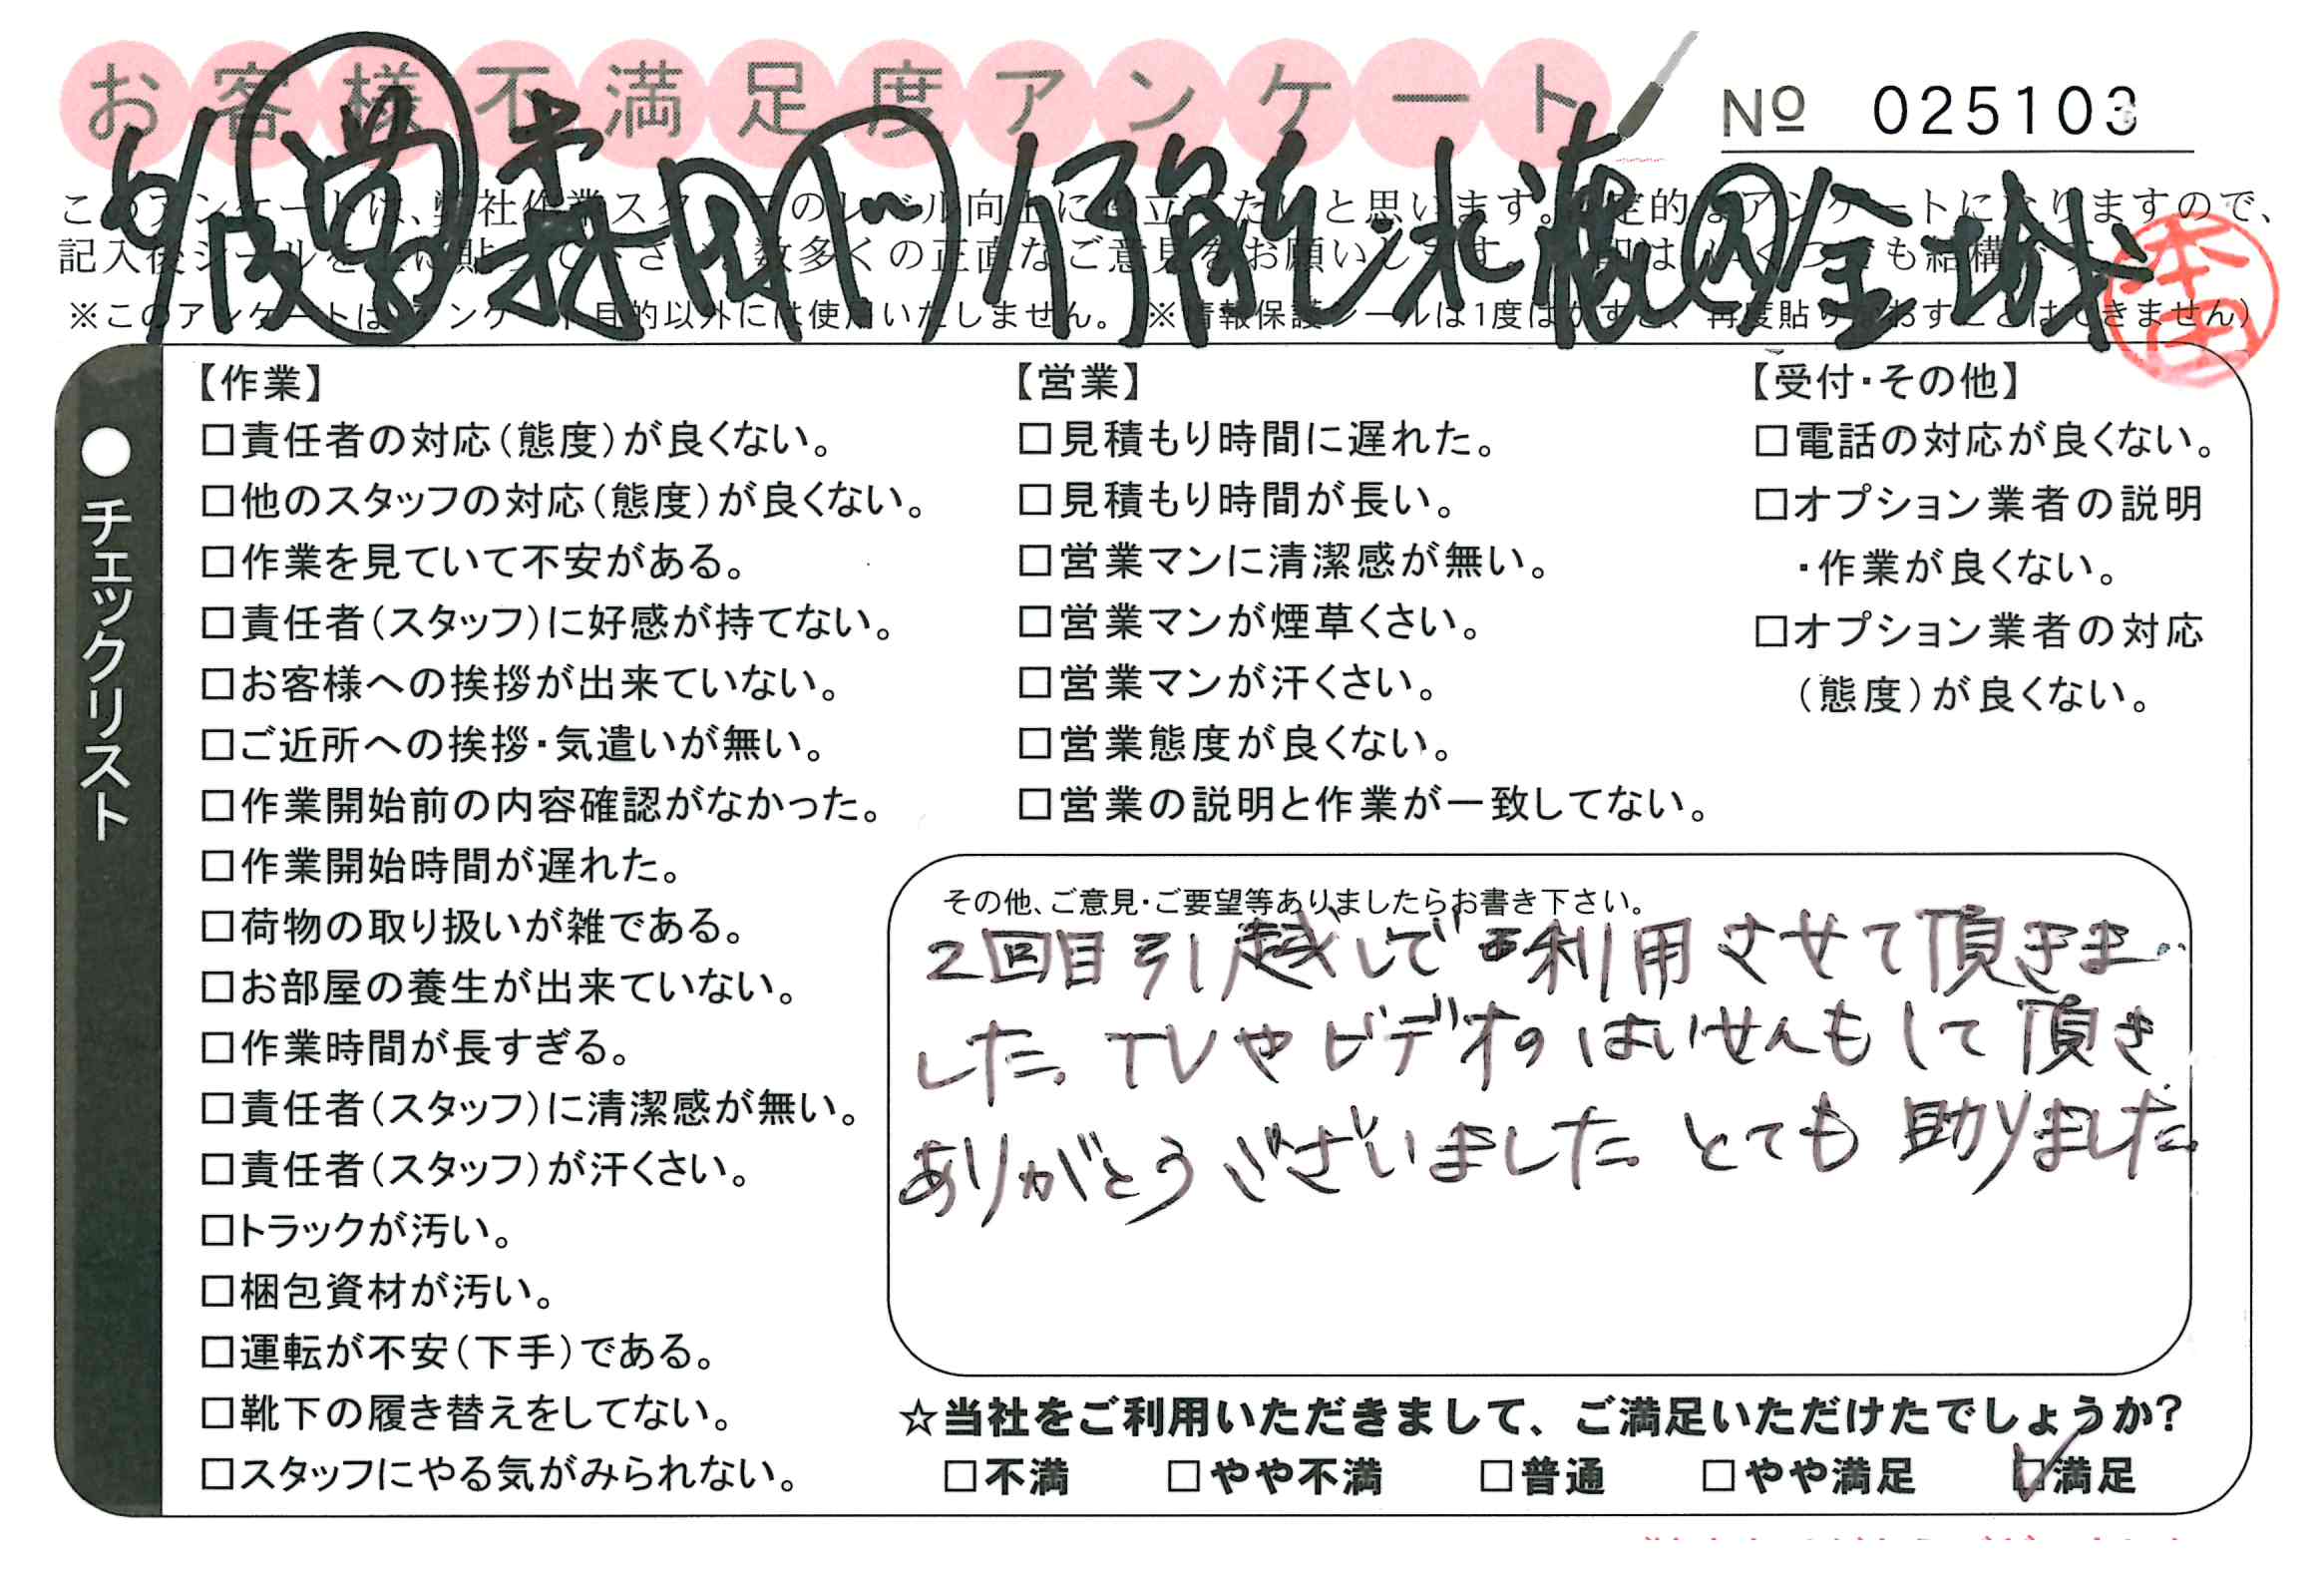 お客様不満足度アンケート
Nº 025103
このアンケートは、弊社作業スタッフのレベル向上に役立てたいと思います。定的なアンケートになりますので、
記入後シールを上に貼って下さい。数多くの正直なご意見をお願いします。
※このアンケートはアンケート目的以外には使用いたしません。(※情報保護シールは1度はがすと、再度貼りなおすことはできません)
本田
●チェックリスト
【作業】
□責任者の対応(態度)が良くない。
□他のスタッフの対応(態度)が良くない。
□作業を見ていて不安がある。
□責任者(スタッフ)に好感が持てない。
□お客様への挨拶が出来ていない。
□ご近所への挨拶・気遣いが無い。
□作業開始前の内容確認がなかった。
□作業開始時間が遅れた。
□荷物の取り扱いが雑である。
□お部屋の養生が出来ていない。
□作業時間が長すぎる。
□責任者(スタッフ)に清潔感が無い。
□責任者(スタッフ)が汗くさい。
□トラックが汚い。
□梱包資材が汚い。
□運転が不安(下手)である。
□靴下の履き替えをしてない。
□スタッフにやる気がみられない。
【営業】
□見積もり時間に遅れた。
□見積もり時間が長い。
□営業マンに清潔感が無い。
□営業マンが煙草くさい。
□営業マンが汗くさい。
□営業態度が良くない。
□営業の説明と作業が一致してない。
【受付・その他】
□電話の対応が良くない。
□オプション業者の説明
・作業が良くない。
□オプション業者の対応
(態度)が良くない。
その他、ご意見・ご要望等ありましたらお書き下さい。
2回目引越しで利用させて頂きま
した。TVやビデオのはいせんもして頂き
ありがとうございました。とても助りました。
☆当社をご利用いただきまして、ご満足いただけたでしょうか?
□不満 □やや不満 □普通 □やや満足 ☑満足